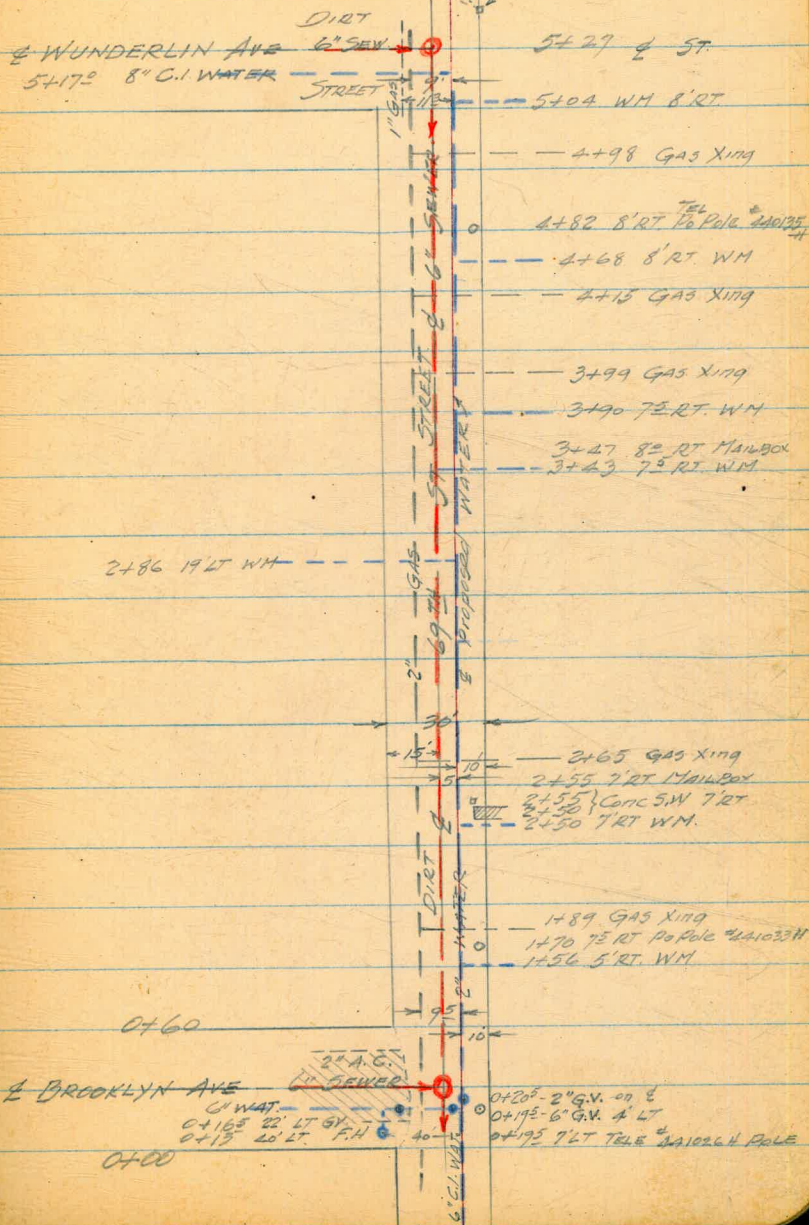 DIRT
℄ WUNDERLIN AVE 6" SEW. 5+27 ℄ ST.
5+17⁰ 8" C.I. WATER
STREET
1" GAS
9'
11'
5+04 WM 8' RT.
4+98 GAS Xing
TEL
4+82 8' RT. Po Pole #440135H
4+68 8' RT WM
4+15 GAS Xing
3+99 GAS Xing
3+90 7⁵ RT. WM
3+47 8⁰ RT MAILBOX
3+43 7⁵ RT. WM
2+86 19' LT WM
℄ 6" SEWER
69TH ST STREET
2" GAS
℄ Proposed WATER
30'
15'
10'
5'
2+65 GAS Xing
2+55 7' RT MAILBOX
2+55 } Conc S.W 7' RT
2+50
2+50 7' RT WM.
DIRT ℄
2" WATER
1+89 GAS Xing
1+70 7⁵ RT Po Pole #441033H
1+56 5' RT. WM
9⁵
10'
0+60
2" A.C.
℄ BROOKLYN AVE 6" SEWER
6" WAT.
0+20⁵ - 2" G.V. on ℄
0+19⁵ - 6" G.V. 4' LT
0+16⁵ 22' LT GV
0+15 40' LT. F.H
40'
0+19⁵ 7' LT TELE #441026H POLE
0+00
6" C.I. WAT.